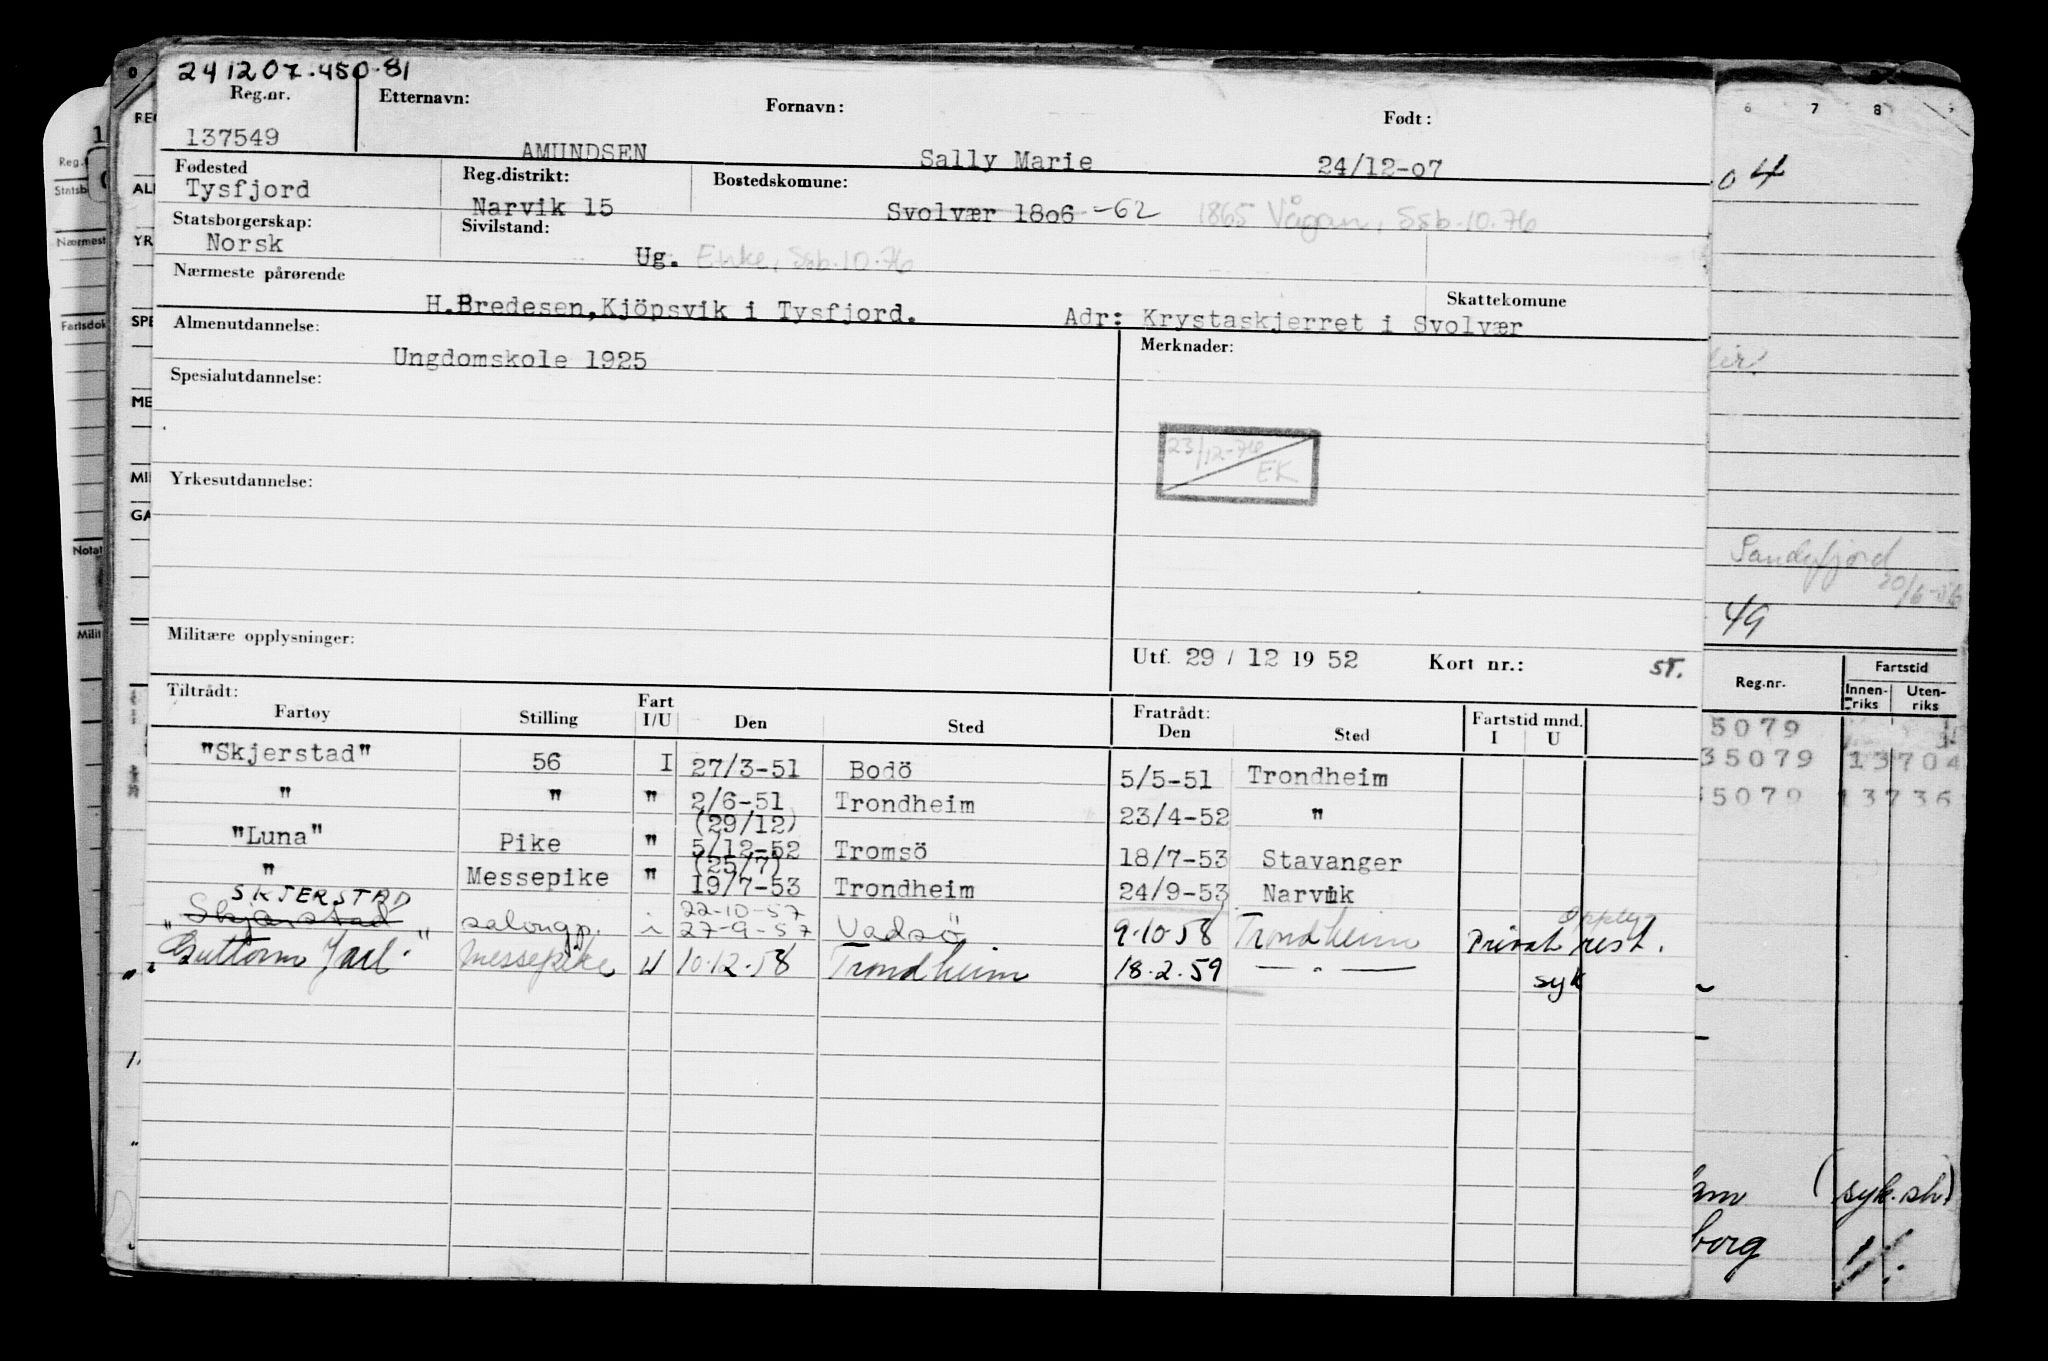 241207.450.81
Reg.nr. Etternavn: Fornavn: Født:
137549 AMUNDSEN Sally Marie 24/12-07
Fødested Reg.distrikt: Bostedskommune:
Tysfjord Narvik 15 Svolvær 1806 -62 1865 Vågan, Ssb.10.76
Statsborgerskap: Sivilstand:
Norsk Ug. Enke, Ssb.10.76
Nærmeste pårørende Skattekomune
H.Bredesen,Kjöpsvik i Tysfjord. Adr: Krystaskjerret i Svolvær
Almenutdannelse: Merknader:
Ungdomskole 1925
Spesialutdannelse:
23/12-76
EK
Yrkesutdannelse:
Militære opplysninger:
Utf. 29 / 12 19 52 Kort nr.: ST.
Tiltrådt: Fratrådt:
Fartøy Stilling Fart I/U Den Sted Den Sted Fartstid mnd. I U
"Skjerstad" 56 I 27/3-51 Bodö 5/5-51 Trondheim
" " " 2/6-51 Trondheim 23/4-52 "
(29/12)
"Luna" Pike " 5/12-52 Tromsö 18/7-53 Stavanger
(25/7)
" Messepike " 19/7-53 Trondheim 24/9-53 Narvik
SKJERSTAD 22-10-57
Skjerstad salongp. i 27-9-57 Vadsö 9.10.58 Trondheim Privat rest.
"Guttorm Jarl" Messepike U 10.12.58 Trondheim 18.2.59 — " — syk
6 7 8
04
Sandefjord
20/6-56
49
Reg.nr. Fartstid
Innen-riks Uten-riks
5079
35079 13704
5079 13736
(syk.sh)
borg